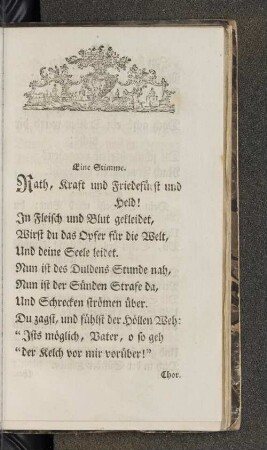 Eine Stimme.
Rath, Kraft und Friedefürst und
Held!
In Fleisch und Blut gekleidet,
Wirst du das Opfer für die Welt,
Und deine Seele leidet.
Nun ist des Duldens Stunde nah,
Nun ist der Sünden Strafe da,
Und Schrecken strömen über.
Du zagst, und fühlst der Höllen Weh:
“Ists möglich, Vater, o so geh
“der Kelch vor mir vorüber!”
Chor.